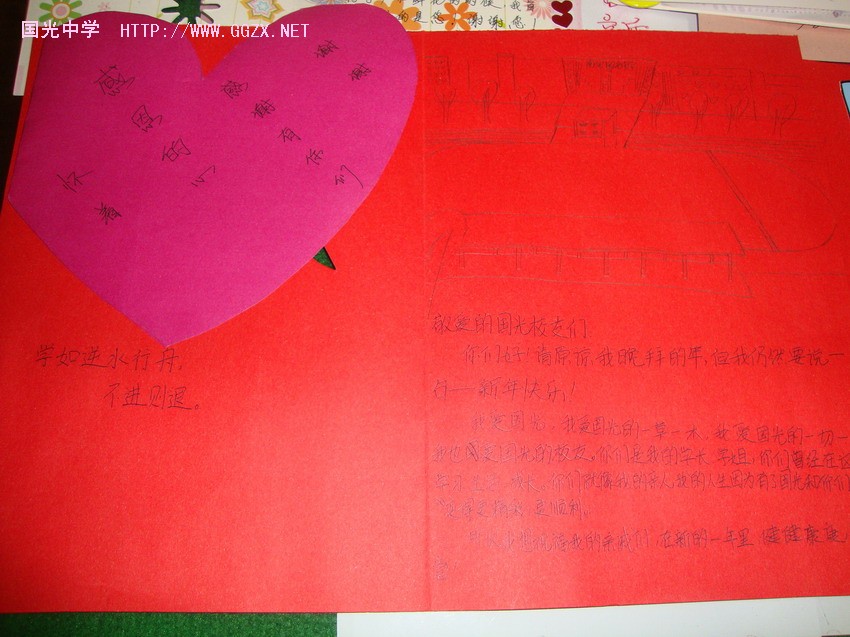 国光中学 HTTP://WWW.GGZX.NET
怀着
感恩的心
感谢有你们
谢谢
学如逆水行舟,
不进则退。
敬爱的国光校友们:
你们好!请原谅我晚拜的年,但我仍然要说一
句——新年快乐!
我爱国光。我爱国光的一草一木,我爱国光的一切一
国光的校友,你们是我的学长、学姐,你们曾经在这
你们就像我的亲人,我的人生因为有了国光和你们
更顺利。
我的亲戚们,在新的一年里,健健康康